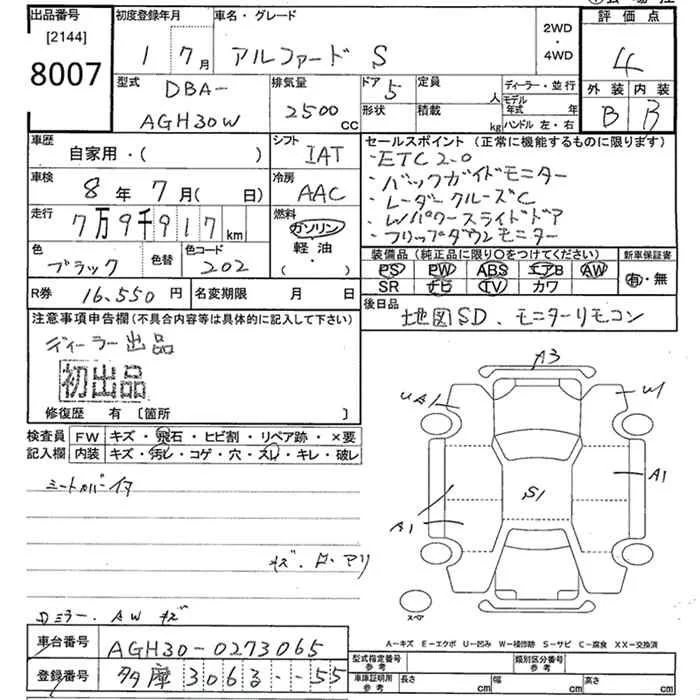 出品番号
[2144]
8007
初度登録年月
1 年 7月
車名・グレード
アルファード S
2WD
・
4WD
評価点
4
外装 内装
B B
型式
DBA-
AGH30W
排気量
2500
cc
ドア
5
形状
定員
人
積載
kg
ディーラー・並行
モデル年式 年
ハンドル 左・右
車歴
自家用・( )
シフト
IAT
車検
8年 7月( 日)
冷房
AAC
走行
7万9千917km
燃料
ガソリン
軽油
・( )
色
ブラック
色替
色コード
202
R券 16,550円
名変期限 月 日
セールスポイント (正常に機能するものに限ります)
・ETC2.0
・バックガイドモニター
・レーダークルーズC
・Wパワースライドドア
・フリップダウンモニター
装備品 (純正品に限り○をつけてください)
PS PW ABS エアB AW
SR ナビ TV カワ
新車保証書
有・無
後日品
地図SD、モニターリモコン
注意事項申告欄(不具合内容等は具体的に記入して下さい)
ディーラー出品
初出品
修復歴 有 [箇所 ]
検査員
記入欄
FW キズ・飛石・ヒビ割・リペア跡・×要
内装 キズ・汚レ・コゲ・穴・スレ・キレ・破レ
シートカバーイタ
キズ・ドアリ
Dミラー、AW キズ
A3
UA1
W1
A1
S1
A1
スペア
A-キズ E-エクボ U-凹み W-補修跡 S-サビ C-腐食 XX-交換済
車台番号 AGH30-0273065
登録番号 多摩 306 3 --55
型式指定番号
参考
類別区分番号
参考
車庫証明用
参考
長さ cm
幅 cm
高さ cm